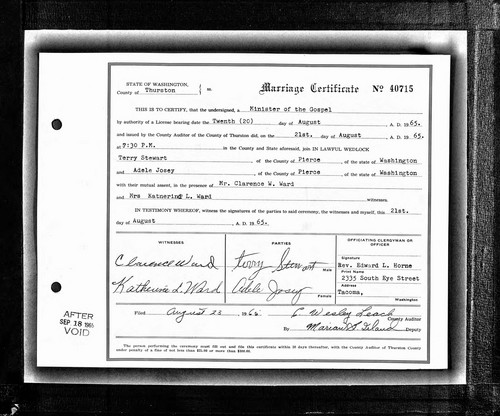 STATE OF WASHINGTON,
County of Thurston } ss.
Marriage Certificate Nº 40715
THIS IS TO CERTIFY, that the undersigned, a Minister of the Gospel
by authority of a License bearing date the Twenth (20) day of August , A. D. 1965.
and issued by the County Auditor of the County of Thurston did, on the 21st. day of August , A. D. 1965.
at 7:30 P.M. in the County and State aforesaid, join IN LAWFUL WEDLOCK
Terry Stewart , of the County of Pierce , of the state of Washington
and Adele Josey , of the County of Pierce , of the state of Washington
with their mutual assent, in the presence of Mr. Clarence W. Ward
and Mrs Katherine L. Ward witnesses.
IN TESTIMONY WHEREOF, witness the signatures of the parties to said ceremony, the witnesses and myself, this 21st.
day of August , A. D. 1965.
WITNESSES
PARTIES
OFFICIATING CLERGYMAN OR OFFICER
Clarence Ward
Terry Stewart Male
Signature
Rev. Edward L. Horne
Print Name
2335 South Eye Street
Katherine L Ward
Adele Josey Female
Address
Tacoma,
Washington
Filed August 23 , 1965
C Wesley Leach County Auditor
By Deputy
The person performing the ceremony must fill out and file this certificate within 30 days thereafter, with the County Auditor of Thurston County
under penalty of a fine of not less than $20.00 or more than $300.00.
AFTER
SEP 18 1965
VOID